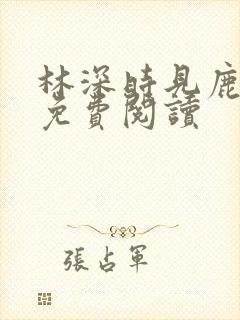 林深時見鹿
免費閱讀
張占軍